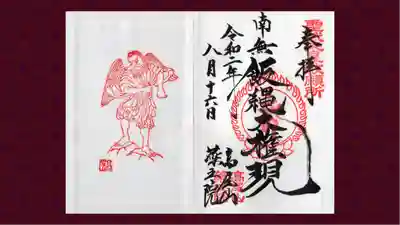 奉拝
南無飯縄大権現
令和二年
八月十六日
高尾山
薬王院